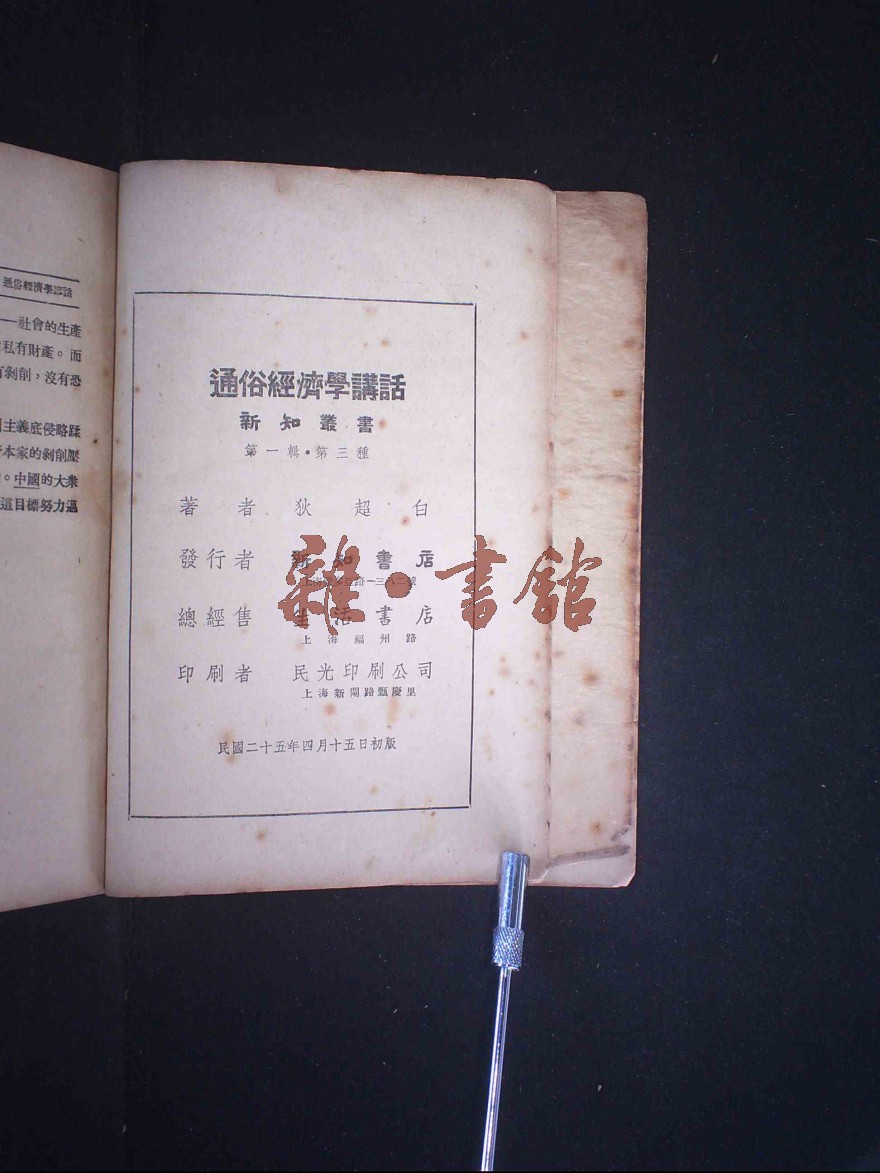 通俗經濟學講話
社會的生產
私有財產。而
剝削，沒有恐
主義底侵略蹂
本家的剝削壓
中國的大衆
這目標努力邁
通俗經濟學講話
新知叢書
第一輯·第三種
著者 狄超白
發行者 新知書店
總經售 生活書店
上海福州路
印刷者 民光印刷公司
上海新閘路甄慶里
民國二十五年四月十五日初版
雜·書館